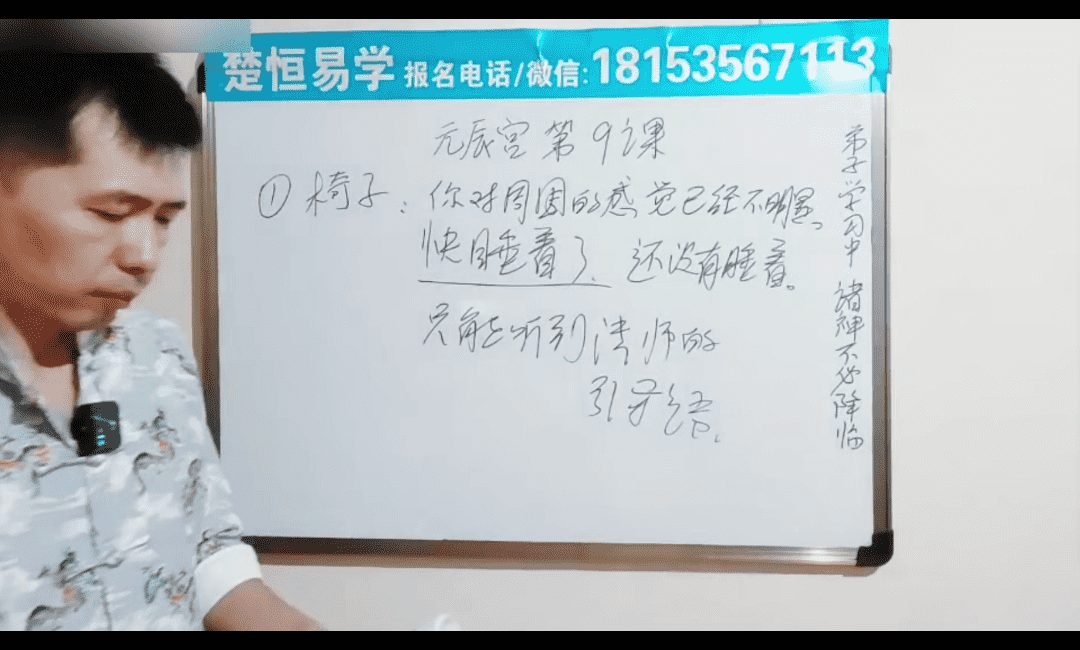 楚恒易学 报名电话/微信:18153567113
元辰宫 第9课
① 椅子：你对周围的感觉已经不明显。
快睡着了、还没有睡着。
只能听到法师的
引导语。
弟子学习中 诸神不必降临